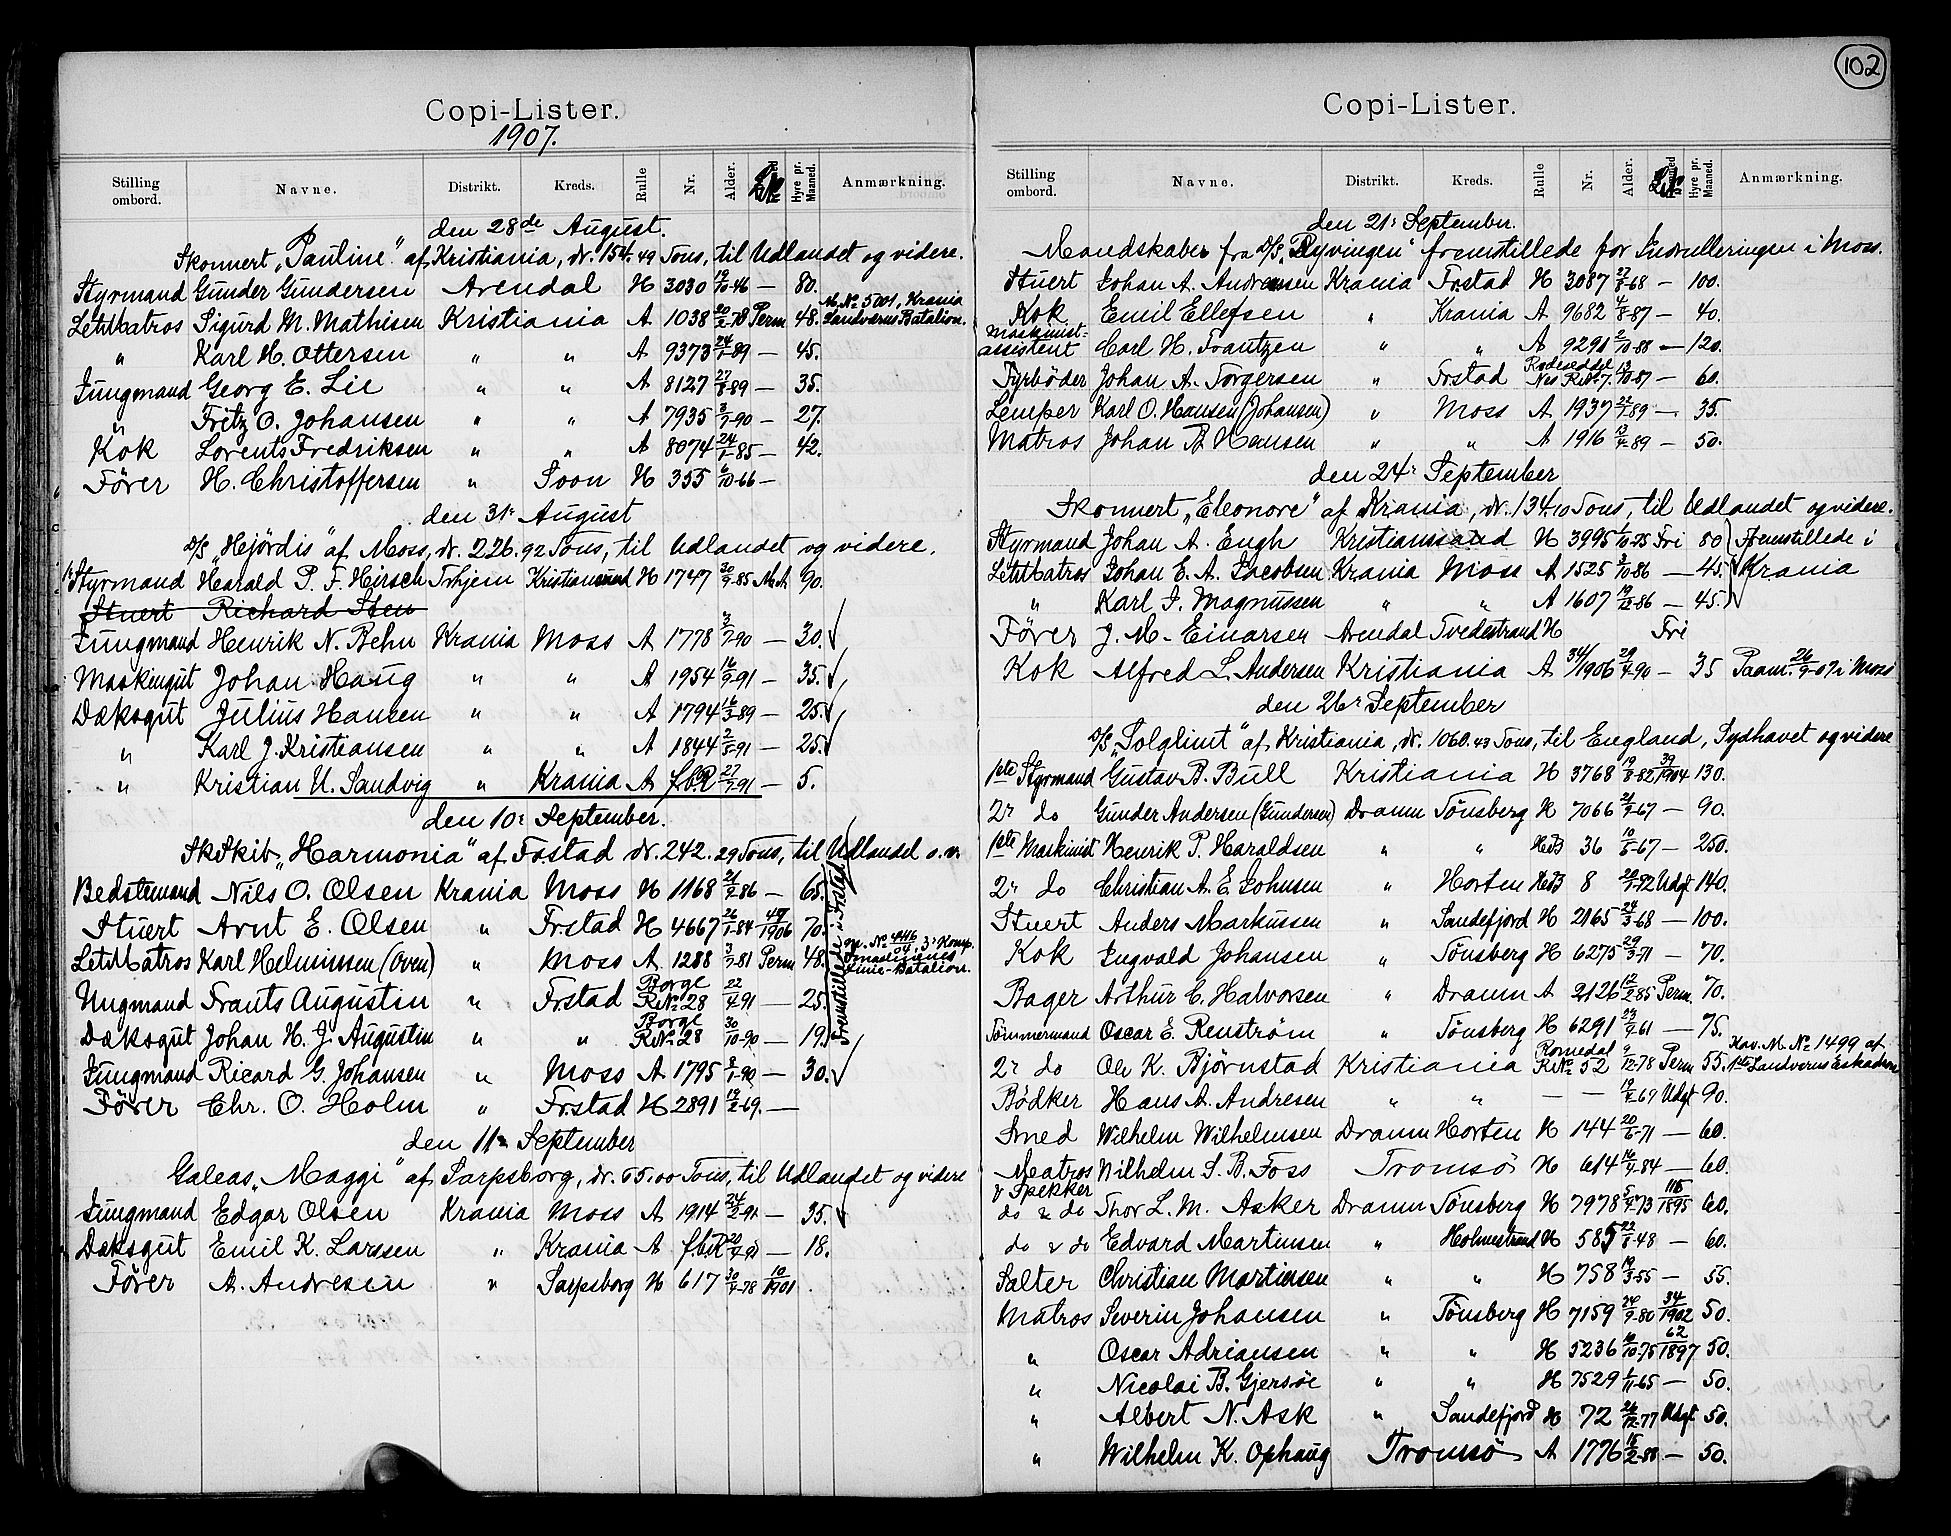 Copi-Lister.
1907.
Stilling ombord. Navne. Distrikt. Kreds. Rulle Nr. Alder. Hyre pr. Maaned. Anmærkning.
den 28de August.
Skonnert „Pauline" af Kristiania, dr. 154.49 Tons, til Udlandet og videre.
Styrmand Gunder Gundersen Arendal H 3030 19/10-46 — 80.
LetMatros Sigurd M. Mathisen Kristiania A 1038 20/2-78 Perm 48. M. No 5001, Krania Landværns Batalion.
" Karl H. Ottersen " " A 9373 24/1-89 — 45.
Jungmand Georg E. Lie " " A 8127 27/8-89 — 35.
" Fritz O. Johansen " " A 7935 3/7-90 — 27.
Kok Lorents Fredriksen " " A 8074 24/1-85 — 42.
Fører H. Christoffersen " Soon H 355 6/10-66 —
den 31r August
D/S „Hjørdis" af Moss, dr. 226.92 Tons, til Udlandet og videre.
1r Styrmand Harald P. F. Hirsch Trhjem Kristiansund H 1747 30/9-85 90.
Stuert Richard Sten
Jungmand Henrik N. Behn Krania Moss A 1778 3/7-90 — 30.
Maskingut Johan Haug " " A 1954 16/9-91 — 35.
Dæksgut Julius Hansen " " A 1794 16/3-89 — 25.
" Karl J. Kristiansen " " A 1844 2/5-91 — 25.
" Kristian U. Sandvig " Krania A fbR 27/7-91 — 5.
den 10r September.
SkSkib „Harmonia" af Frstad dr. 242.29 Tons, til Udlandet o.v.
Bedstemand Nils O. Olsen Krania Moss H 1168 21/2-86 — 65.
Stuert Arnt E. Olsen " Frstad H 4667 26/1-84 47/1906 70.
LetMatros Karl Helminsen (Oven) " Moss A 1288 3/7-81 Perm 48. No 4416/04, 3r Komp. Smaalenenes Linie-Batalion.
Ungmand Frants Augustin " Frstad Borge R.No 28 22/4-91 — 25.
Dæksgut Johan H. J. Augustin " " Borge R.No 28 30/10-90 — 19.
Fremstillede i Frstad
Jungmand Ricard G. Johansen " Moss A 1795 8/1-90 — 30.
Fører Chr. O. Holm " Frstad H 2891 19/2-69. —
den 11r September
Galeas „Maggi" af Sarpsborg, dr. 65.00 Tons, til Udlandet og videre
Jungmand Edgar Olsen Krania Moss A 1914 24/2-91 — 35.
Dæksgut Emil K. Larssen " Krania A fbR 20/7-91 — 18.
Fører A. Andresen " Sarpsborg H 617 30/7-78 10/1901.
102
Copi-Lister.
Stilling ombord. Navne. Distrikt. Kreds. Rulle Nr. Alder. Hyre pr. Maaned. Anmærkning.
den 21r September.
Mandskaber fra D/S „Ryvingen" fremstillede for Indrulleringen i Moss.
Stuert Johan A. Andresen Krania Frstad H 3087 27/8-68 — 100.
Kok Emil Ellefsen " Krania A 9682 4/8-87 — 40.
Maskinist-assistent Carl H. Frantzen " " A 9291 2/10-88 — 120.
Fyrbøder Johan A. Torgersen " Frstad Rødeseddel R.No 7. 13/10-87 — 60.
Lemper Karl O. Hansen (Johansen) " Moss A 1937 22/7-89 — 35.
Matros Johan B. Hansen " " A 1916 13/4-89 — 50.
den 24r September
Skonnert „Eleonore" af Krania, dr. 134.10 Tons, til Udlandet og videre.
Styrmand Johan A. Engh Kristianssand H 3995 1/10-75 Fri 80 Fremstillede i
LetMatros Johan E. A. Jacobsen Krania Moss A 1525 3/10-86 — 45. Krania
" Karl J. Magnussen " " A 1607 19/12-86 — 45.
Fører J. M. Einarsen Arendal Tvedestrand H Fri
Kok Alfred L. Andersen Kristiania A 34/1906 29/4-90 — 35 Paam. 26/9-07 i Moss
den 26r September
D/S „Solglimt" af Kristiania, dr. 1060.43 Tons, til England, Sydhavet og videre
1ste Styrmand Gustav B. Bull Kristiania H 3768 19/8-82 39/1904 130.
2r do Gunder Andersen (Gundersen) Dramm Tønsberg H 7066 21/9-67 — 90.
1ste Maskinist Henrik P. Haraldsen " " HB 36 10/6-67 — 250.
2r do Christian A. E. Johnsen " Horten HB 8 20/7-72 Udgt. 140.
Stuert Anders Markussen " Sandefjord H 2165 24/3-68 — 100.
Kok Ingvald Johansen " Tønsberg H 6275 29/3-71 — 70.
Bager Arthur C. Halvorsen " Dramm A 2126 12/2-85 Perm. 70.
Tømmermand Oscar E. Renstrøm " Tønsberg H 6291 23/9-61 — 75.
2r do Ole K. Bjørnstad Kristiania Romedal R.No 52 9/12-78 Perm 55. Kav. M. No. 1499 af 1ste Landværns Eskadron
Bødker Hans A. Andresen " " — — 19/4-69 Udgt 90.
Smed Wilhelm Wilhelmsen Dramm Horten H 144 20/6-71 — 60.
Matros Wilhelm S. B. Foss Tromsø H 614 16/4-84 — 60.
& Spekker
do & do Thor L. M. Asker Dramm Tønsberg H 7978 5/9-73 115/1895 60.
do & do Edvard Martinsen " Holmestrand H 585 22/8-48 — 60.
Salter Christian Martinsen " " H 758 19/3-55 — 55.
Matros Severin Johansen " Tønsberg H 7159 24/9-80 34/1902 50.
" Oscar Adriansen " " H 5236 10/10-75 62/1897 50.
" Nicolai B. Gjersøe " " H 7529 1/11-65 — 50.
" Albert N. Ask " Sandefjord H 72 26/12-77 Udgt 50.
" Wilhelm K. Ophaug Tromsø A 1776 15/2-88 — 50.